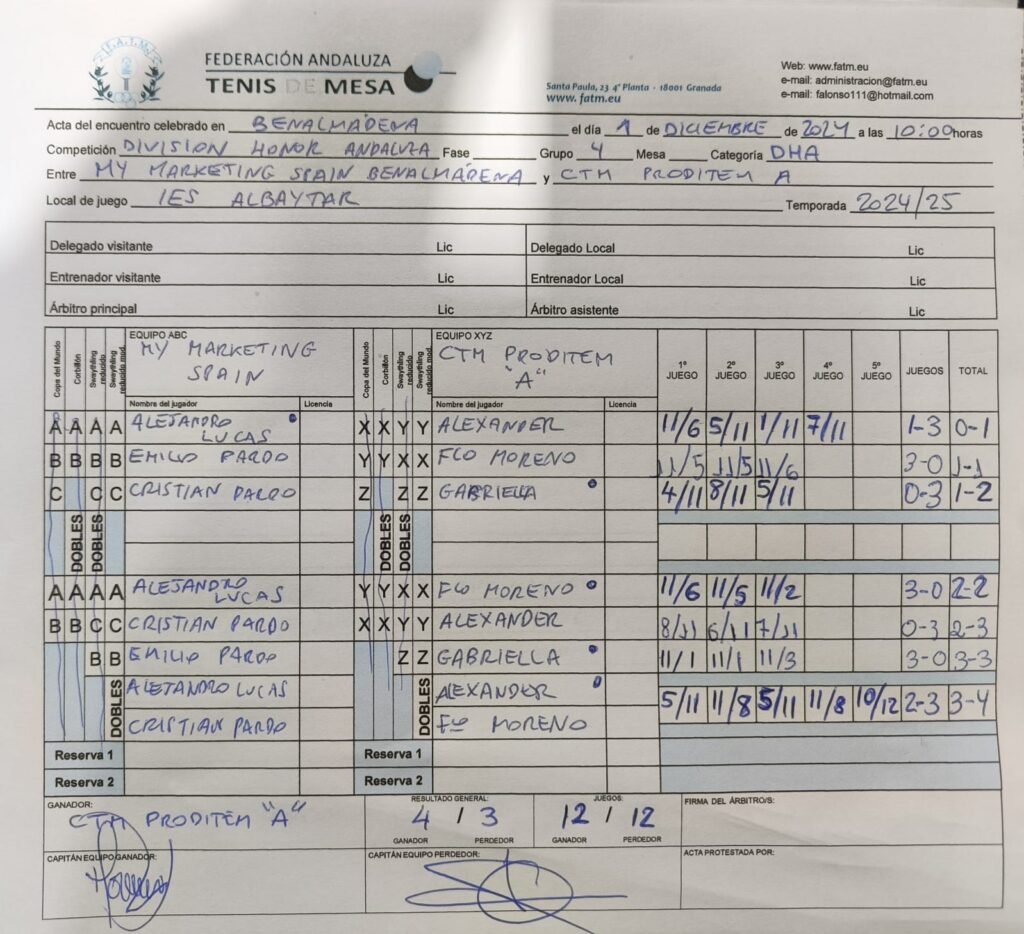 F.A.T.M.
FEDERACIÓN ANDALUZA
TENIS DE MESA
Santa Paula, 23 4ª Planta · 18001 Granada
www.fatm.eu
Web: www.fatm.eu
e-mail: administracion@fatm.eu
e-mail: falonso111@hotmail.com
Acta del encuentro celebrado en BENALMÁDENA el día 1 de DICIEMBRE de 2024 a las 10:00 horas
Competición DIVISION HONOR ANDALUZA Fase Grupo 4 Mesa Categoría DHA
Entre MY MARKETING SPAIN BENALMÁDENA y CTM PRODITEM A
Local de juego IES ALBAYTAR Temporada 2024/25
Delegado visitante Lic Delegado Local Lic
Entrenador visitante Lic Entrenador Local Lic
Árbitro principal Lic Árbitro asistente Lic
Copa del Mundo Corbillón Swaythling reducido Swaythling reducido mod. EQUIPO ABC MY MARKETING SPAIN Copa del Mundo Corbillón Swaythling reducido Swaythling reducido mod. EQUIPO XYZ CTM PRODITEM "A" 1º JUEGO 2º JUEGO 3º JUEGO 4º JUEGO 5º JUEGO JUEGOS TOTAL
Nombre del jugador Licencia Nombre del jugador Licencia
A A A A ALEJANDRO LUCAS X X Y Y ALEXANDER 11/6 5/11 1/11 7/11 1-3 0-1
B B B B EMILIO PARDO Y Y X X FCO MORENO 11/5 11/5 11/6 3-0 1-1
C C C CRISTIAN PARDO Z Z Z GABRIELLA 4/11 8/11 5/11 0-3 1-2
DOBLES DOBLES DOBLES DOBLES
A A A A ALEJANDRO LUCAS Y Y X X FCO MORENO 11/6 11/5 11/2 3-0 2-2
B B C C CRISTIAN PARDO X X Y Y ALEXANDER 8/11 6/11 7/11 0-3 2-3
B B EMILIO PARDO Z Z GABRIELLA 11/1 11/1 11/3 3-0 3-3
DOBLES ALEJANDRO LUCAS DOBLES ALEXANDER 5/11 11/8 5/11 11/8 10/12 2-3 3-4
CRISTIAN PARDO FCO MORENO
Reserva 1 Reserva 1
Reserva 2 Reserva 2
GANADOR: CTM PRODITEM "A"
RESULTADO GENERAL: 4 / 3
GANADOR PERDEDOR
JUEGOS: 12 / 12
GANADOR PERDEDOR
FIRMA DEL ÁRBITRO/S:
CAPITÁN EQUIPO GANADOR:
CAPITÁN EQUIPO PERDEDOR:
ACTA PROTESTADA POR: